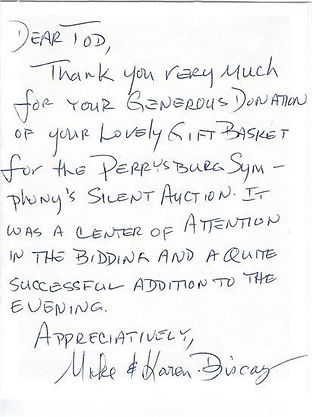 Dear Tod,
Thank you very much
for your generous donation
of your lovely gift basket
for the Perrysburg Sym-
phony's Silent Auction. It
was a center of attention
in the bidding and a quite
successful addition to the
evening.
Appreciatively,
Mike & Karen